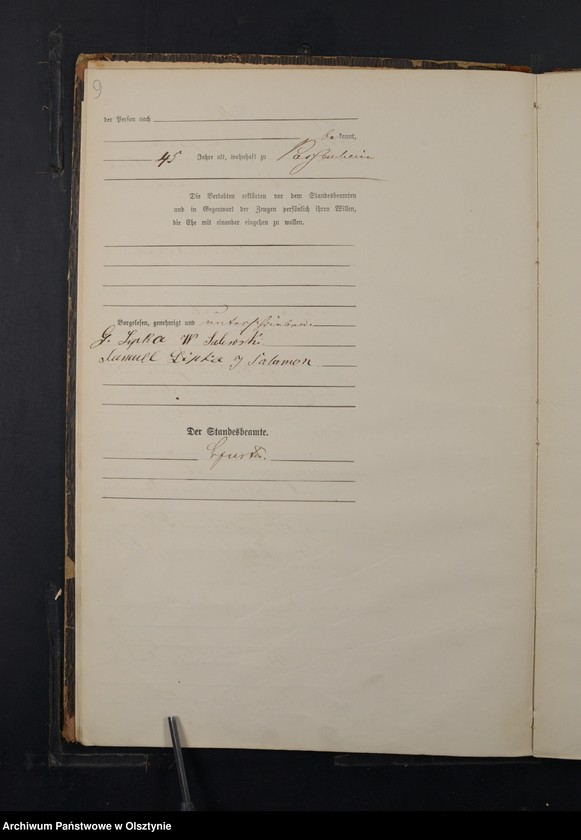 9
der Person nach
be kannt,
45 Jahre alt, wohnhaft zu Passenheim
Die Verlobten erklärten vor dem Standesbeamten
und in Gegenwart der Zeugen persönlich ihren Willen,
die Ehe mit einander eingehen zu wollen.
Vorgelesen, genehmigt und unterschrieben
G. Lipka W
Samuel Lipka J Salamon
Der Standesbeamte.
Archiwum Państwowe w Olsztynie